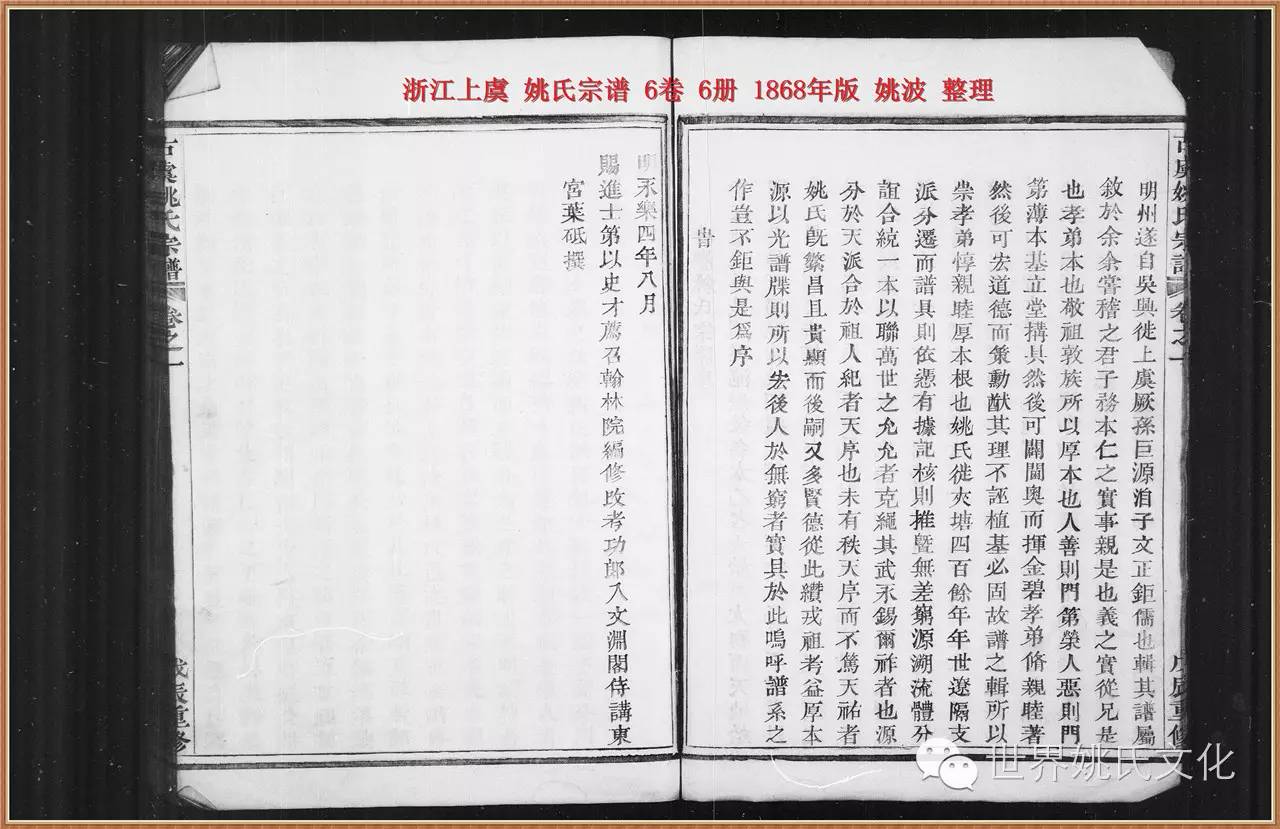 浙江上虞 姚氏宗谱 6卷 6册 1868年版 姚波 整理
古虞姚氏宗譜 卷之一 戊辰重修
明州遂自吳興徙上虞厥孫巨源洎子文正鉅儒也輯其譜屬
敘於余余嘗稽之君子務本仁之實事親是也義之實從兄是
也孝弟本也敬祖敦族所以厚本也人善則門第榮人惡則門
第薄本基立堂搆具然後可闢閫奧而揮金碧孝弟脩親睦著
然後可宏道德而策勳猷其理不誣植基必固故譜之輯所以
崇孝弟惇親睦厚本根也姚氏徙夾塘四百餘年年世遼隔支
派分遷而譜具則依憑有據記核則推暨無差窮源溯流體分
誼合統一本以聯萬世之允允者克繩其武永錫爾祚者也源
分於天派合於祖人紀者天序也未有秩天序而不篤天祐者
姚氏旣繁昌且貴顯而後嗣又多賢德從此纘戎祖考益厚本
源以光譜牒則所以宏後人於無窮者實具於此嗚呼譜系之
作豈不鉅與是爲序
旹
明永樂四年八月
賜進士第以史才薦召翰林院編修改考功郎入文淵閣侍講東
宮葉砥撰
古虞姚氏宗譜 卷之一 戊辰重修
世界姚氏文化